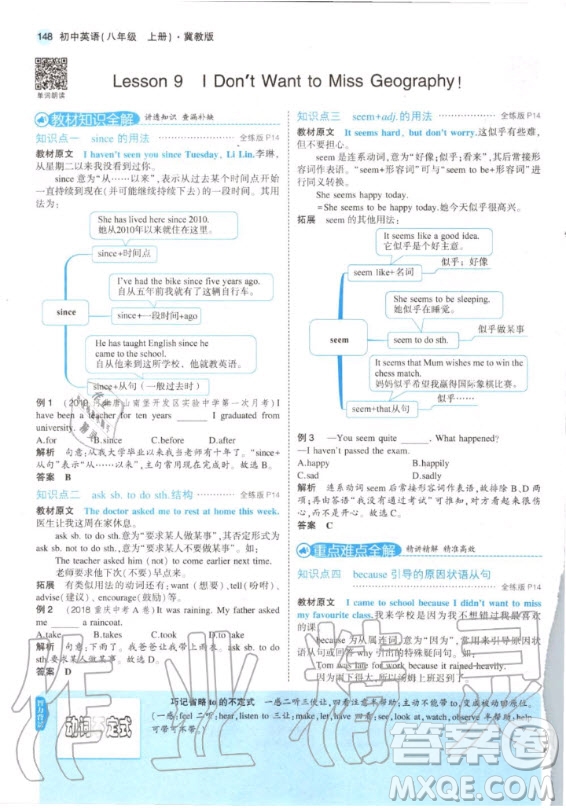 148 初中英语(八年级 上册)·冀教版
单词朗读
Lesson 9 I Don't Want to Miss Geography!
教材知识全解 讲透知识 查漏补缺
知识点一 since 的用法 全练版 P14
教材原文 I haven't seen you since Tuesday, Li Lin.李琳,
从星期二以来我没看到过你。
since 意为“从……以来”,其后常接时间,表示
一直持续到现在(并可能继续持续下去)的一段时间。其用
法为:
since
She has lived here since 2010.
她从2010年以来就住在这里。
since+时间点
I've had the bike since five years ago.
自从五年前我就有了这辆自行车。
since+一段时间+ago
He has taught English since he
came to the school.
自从他来到这所学校,他就教英语。
since+从句(一般过去时)
例 1 (2019 唐山南堡开发区实验中学第一次月考)I
have been a teacher for ten years ____ I graduated from
university.
A.for B.since C.before D.after
解析 句意:从我大学毕业以来我当老师有十年了。“since+
从句”表示“从……以来”,主句常用现在完成时。故选 B。
答案 B
知识点二 ask sb. to do sth.结构 全练版 P14
教材原文 The doctor asked me to rest at home this week.
医生让我这周在家休息。
ask sb. to do sth.意为“要求某人做某事”,其否定形式为
ask sb. not to do sth.,意为“要求某人不要做某事”。如:
The teacher asked him (not) to come earlier next time.
老师要求他下次(不要)早点来。
拓展 有类似用法的动词还有:want(想要),tell(吩咐),
advise(建议),encourage(鼓励)等。
例 2 (2018 重庆中考 A 卷)It was raining. My father asked
me ____ a raincoat.
A.take B.takes C.to take D.took
解析 句意:下雨了。我爸爸让我带上雨衣。ask sb. to do
sth.意为“要求某人做某事”。故选 C。
答案 C
知识点三 seem+adj.的用法 全练版 P14
教材原文 It seems hard, but don't worry.这似乎有些难,
但不要担心。
seem 是连系动词,意为“好像;似乎;看来”,其后常接形
容词作表语。“seem+形容词”可与“seem to be+形容词”进
行同义转换。
She seems happy today.
=She seems to be happy today.她今天似乎很高兴。
拓展 seem 的其他用法:
seem
It seems like a good idea.
它似乎是个好主意。
似乎;好像
seem like+名词
She seems to be sleeping.
她似乎在睡觉。
似乎做某事
seem to do sth.
It seems that Mum wishes me to win the
chess match.
妈妈似乎希望我赢得国际象棋比赛。
似乎……
seem+that从句
例 3 —You seem quite ____. What happened?
—I haven't passed the exam.
A.happy B.happily
C.sad D.sadly
解析 连系动词 seem 后常接形容词作表语,故排除 B、D 两
项;再由答语“我没有通过考试”可推知,对方看起来很伤
心,而不是高兴。故选 C。
答案 C
重点难点全解 精讲精解 精准高效
知识点四 because 引导的原因状语从句
全练版 P14
教材原文 I came to school because I didn't want to miss
my favourite class.我来学校是因为我不想错过我最喜欢
的课。
because 为从属连词,意为“因为”,常用来引导原因状
语从句或回答 why 引出的特殊疑问句。如:
Tom was late for work because it rained heavily.
因为雨下得大,所以汤姆上班迟到了。
智力背囊
动词不定式
巧记省略 to 的不定式 一感二听三使让,四看注意半帮忙;主动不能带 to,变成被动回原位。
(一感:feel 二听:hear, listen to 三让:make, let, have 四看:see, look at, watch, observe 半帮助:help
可带可不带。)
作业精灵
答案圈
MXQE.COM